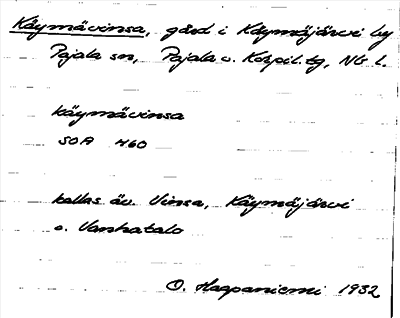 Käymävinsa, gård i Käymäjärvi by
Pajala sn, Pajala o. Korpil. tg, Nb l.
käymävinsa
SOA 460
kallas äv. Vinsa, Käymäjärvi
o. Vanhatalo
O. Haapaniemi 1932